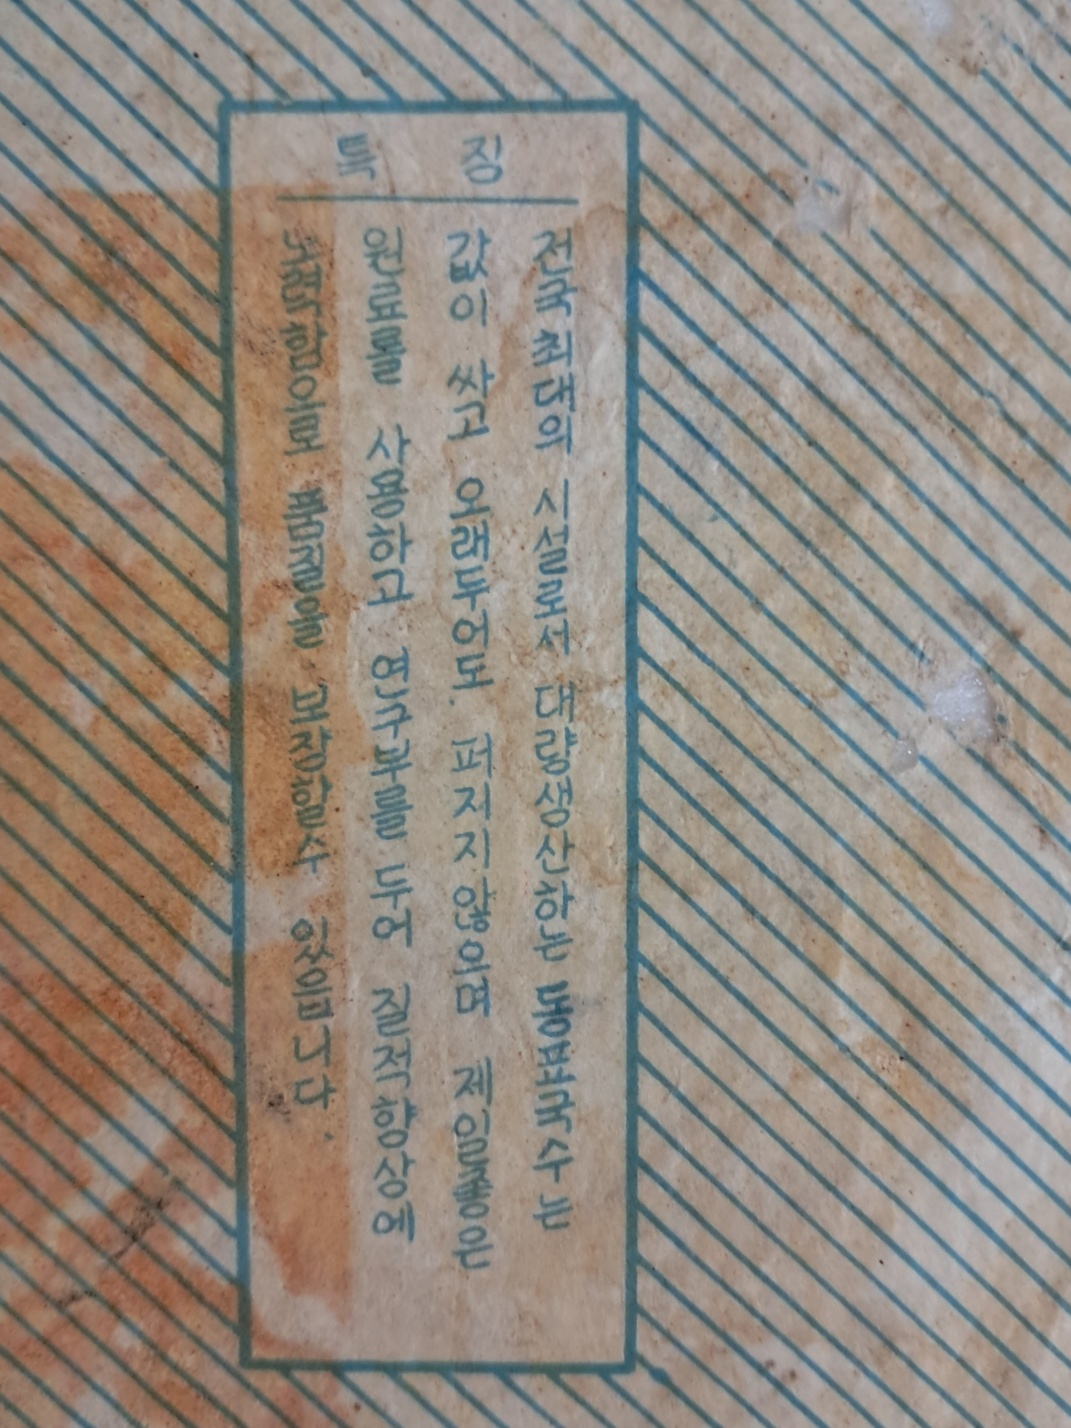 특 징
전국 최대의 시설로서 대량생산하는 동표국수는
값이 싸고 오래두어도 퍼지지않으며 제일좋은
원료를 사용하고 연구부를 두어 질적향상에
노력함으로 품질을 보장할수 있읍니다.